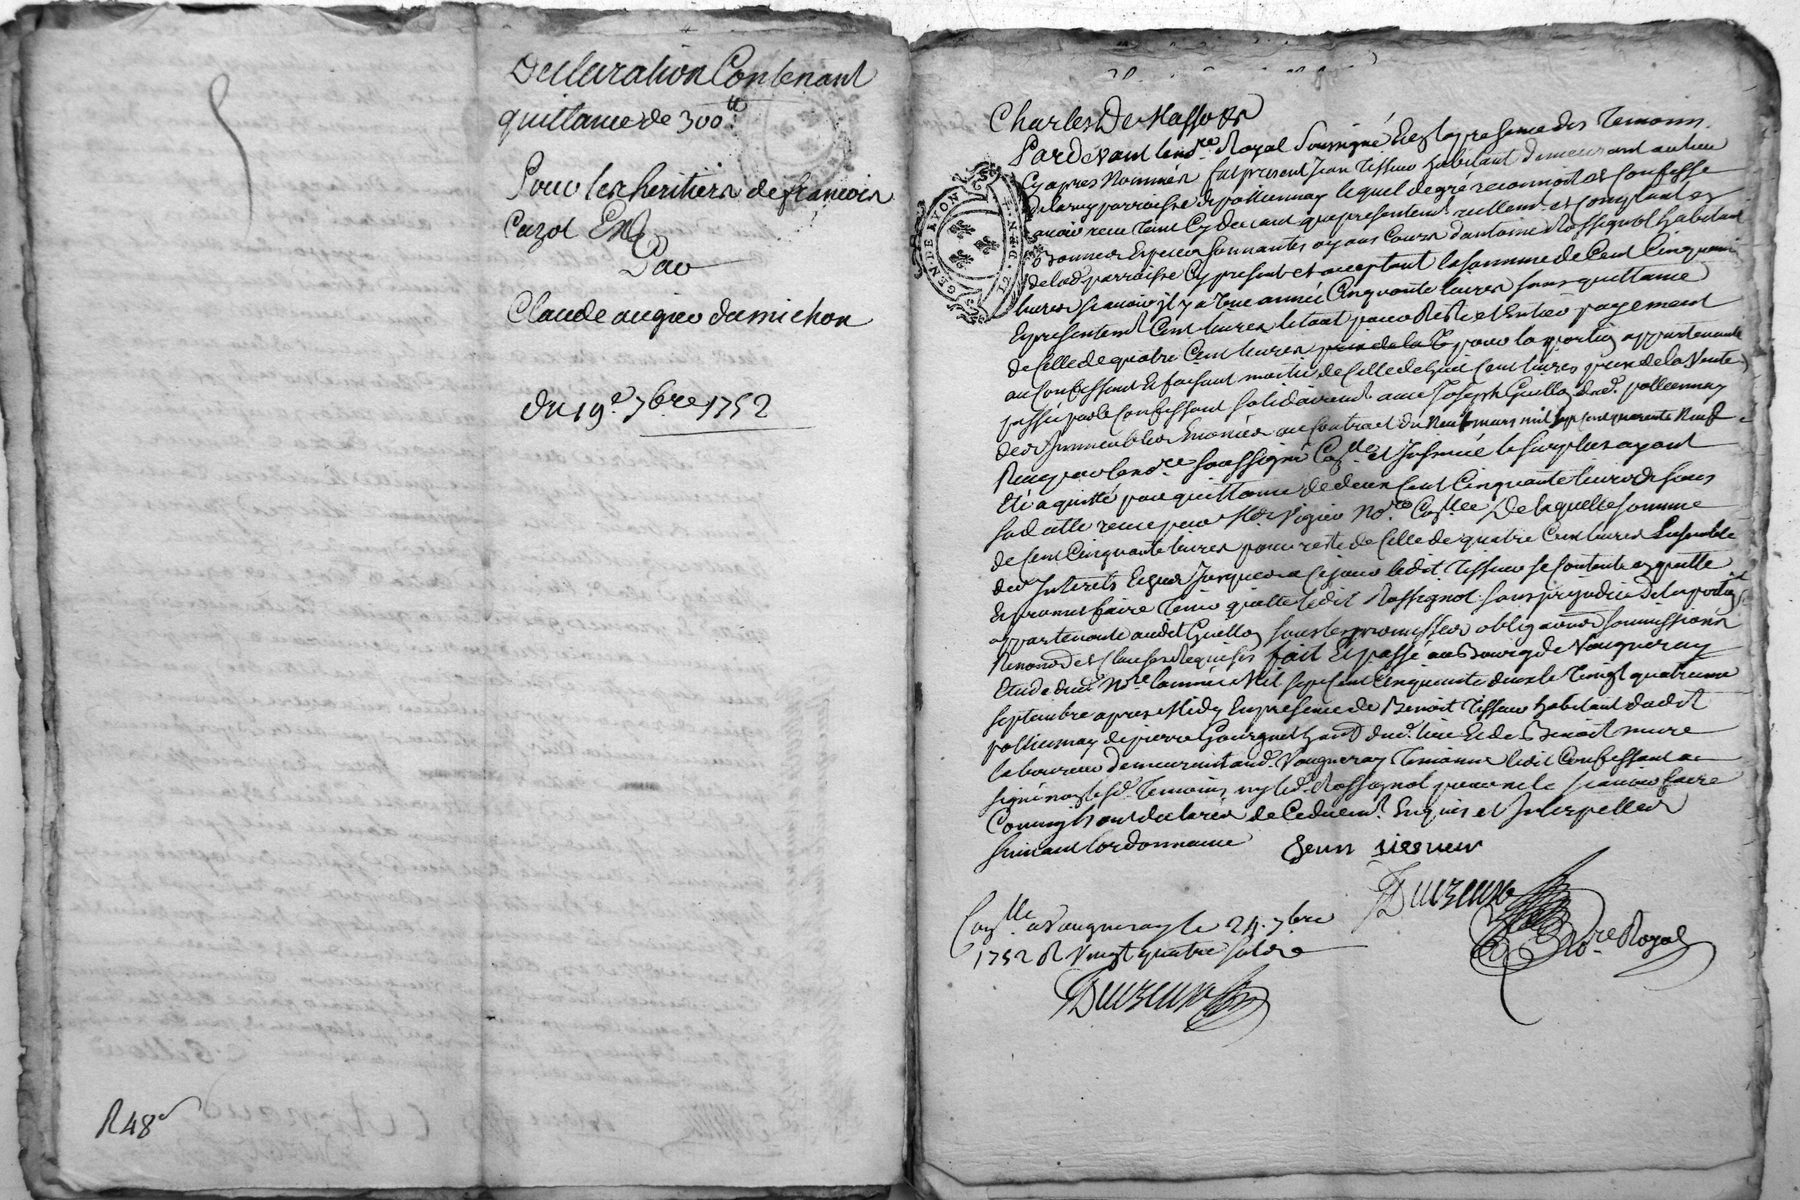 Declaration Contenant
quittance de 300 ₶
Pour les heritiers de francois
Cazot Et
Par
Claude augier dumichon
du 19.e 7bre 1752
R 48 s
GEN. DE LYON
Charles De Masso &a
Pardevant le no.re Royal Soussigné Et En presence des Temoins
Cy apres Nommes fut present Jean Tisseur habitant demeurant au lieu
de parroisse de pollionnay lequel de gré reconnoit et Confesse
avoir receu tant Cy devant que presentement reellement et Comptant en
bonnes Especes sonnantes ayans Cours d'antoine Rossignol habitant
de lad. parroisse Cy present et acceptant la somme de Cent Cinquante
livres scavoir il y a une année Cinquante livres sans quittance
Et presentement Cent livres le tout pour Reste et Entier payement
de Celle de quatre Cent livres pour la portion appartenante
au Confessant Et faisant moitié de Celle de huit Cent livres prix de la Vente
passée par le Confessant solidairement avec Joseph Guillon dud. pollionnay
des Immeubles Enoncés au Contract du Neuf mars mil sept Cent quarante Neuf
Receu par le no.re soussigné Con.llé et Insinué le surplus ayant
Eté aquitté par quittance de deux Cent Cinquante livres
receue par M.e No.re De laquelle somme
de Cent Cinquante livres pour reste de Celle de quatre Cent livres Ensemble
des Interets Echus Jusques a Ce jour ledit Tisseur se Contente en quitte
Et promet faire Tenir quitte ledit Rossignol sans prejudice de la portion
appartenante audit Guillon sous les promesses obligations soumissions
Renonces et Clauses Requises fait Et passé au Bourg de Vaugneray
Etude dud. No.re l'année Mil sept Cent Cinquante deux le Vingt quatrieme
septembre apres Midy En presence de Benoit Tisseur habitant dudit
pollionnay de pierre dud. lieu Et de Benoit mure
laboureur demeurant aud. Vaugneray Temoins ledit Confessant a
signé non les d. Temoins ny led. Rossignol pour ne le scavoir faire
Comme ils ont declarés de Ce duement Enquis et Interpellés
suivant l'ordonnance Jean Tisseur
Con.llé a Vaugneray le 24. 7bre
1752 R Vingt quatre solds
No.re Royal